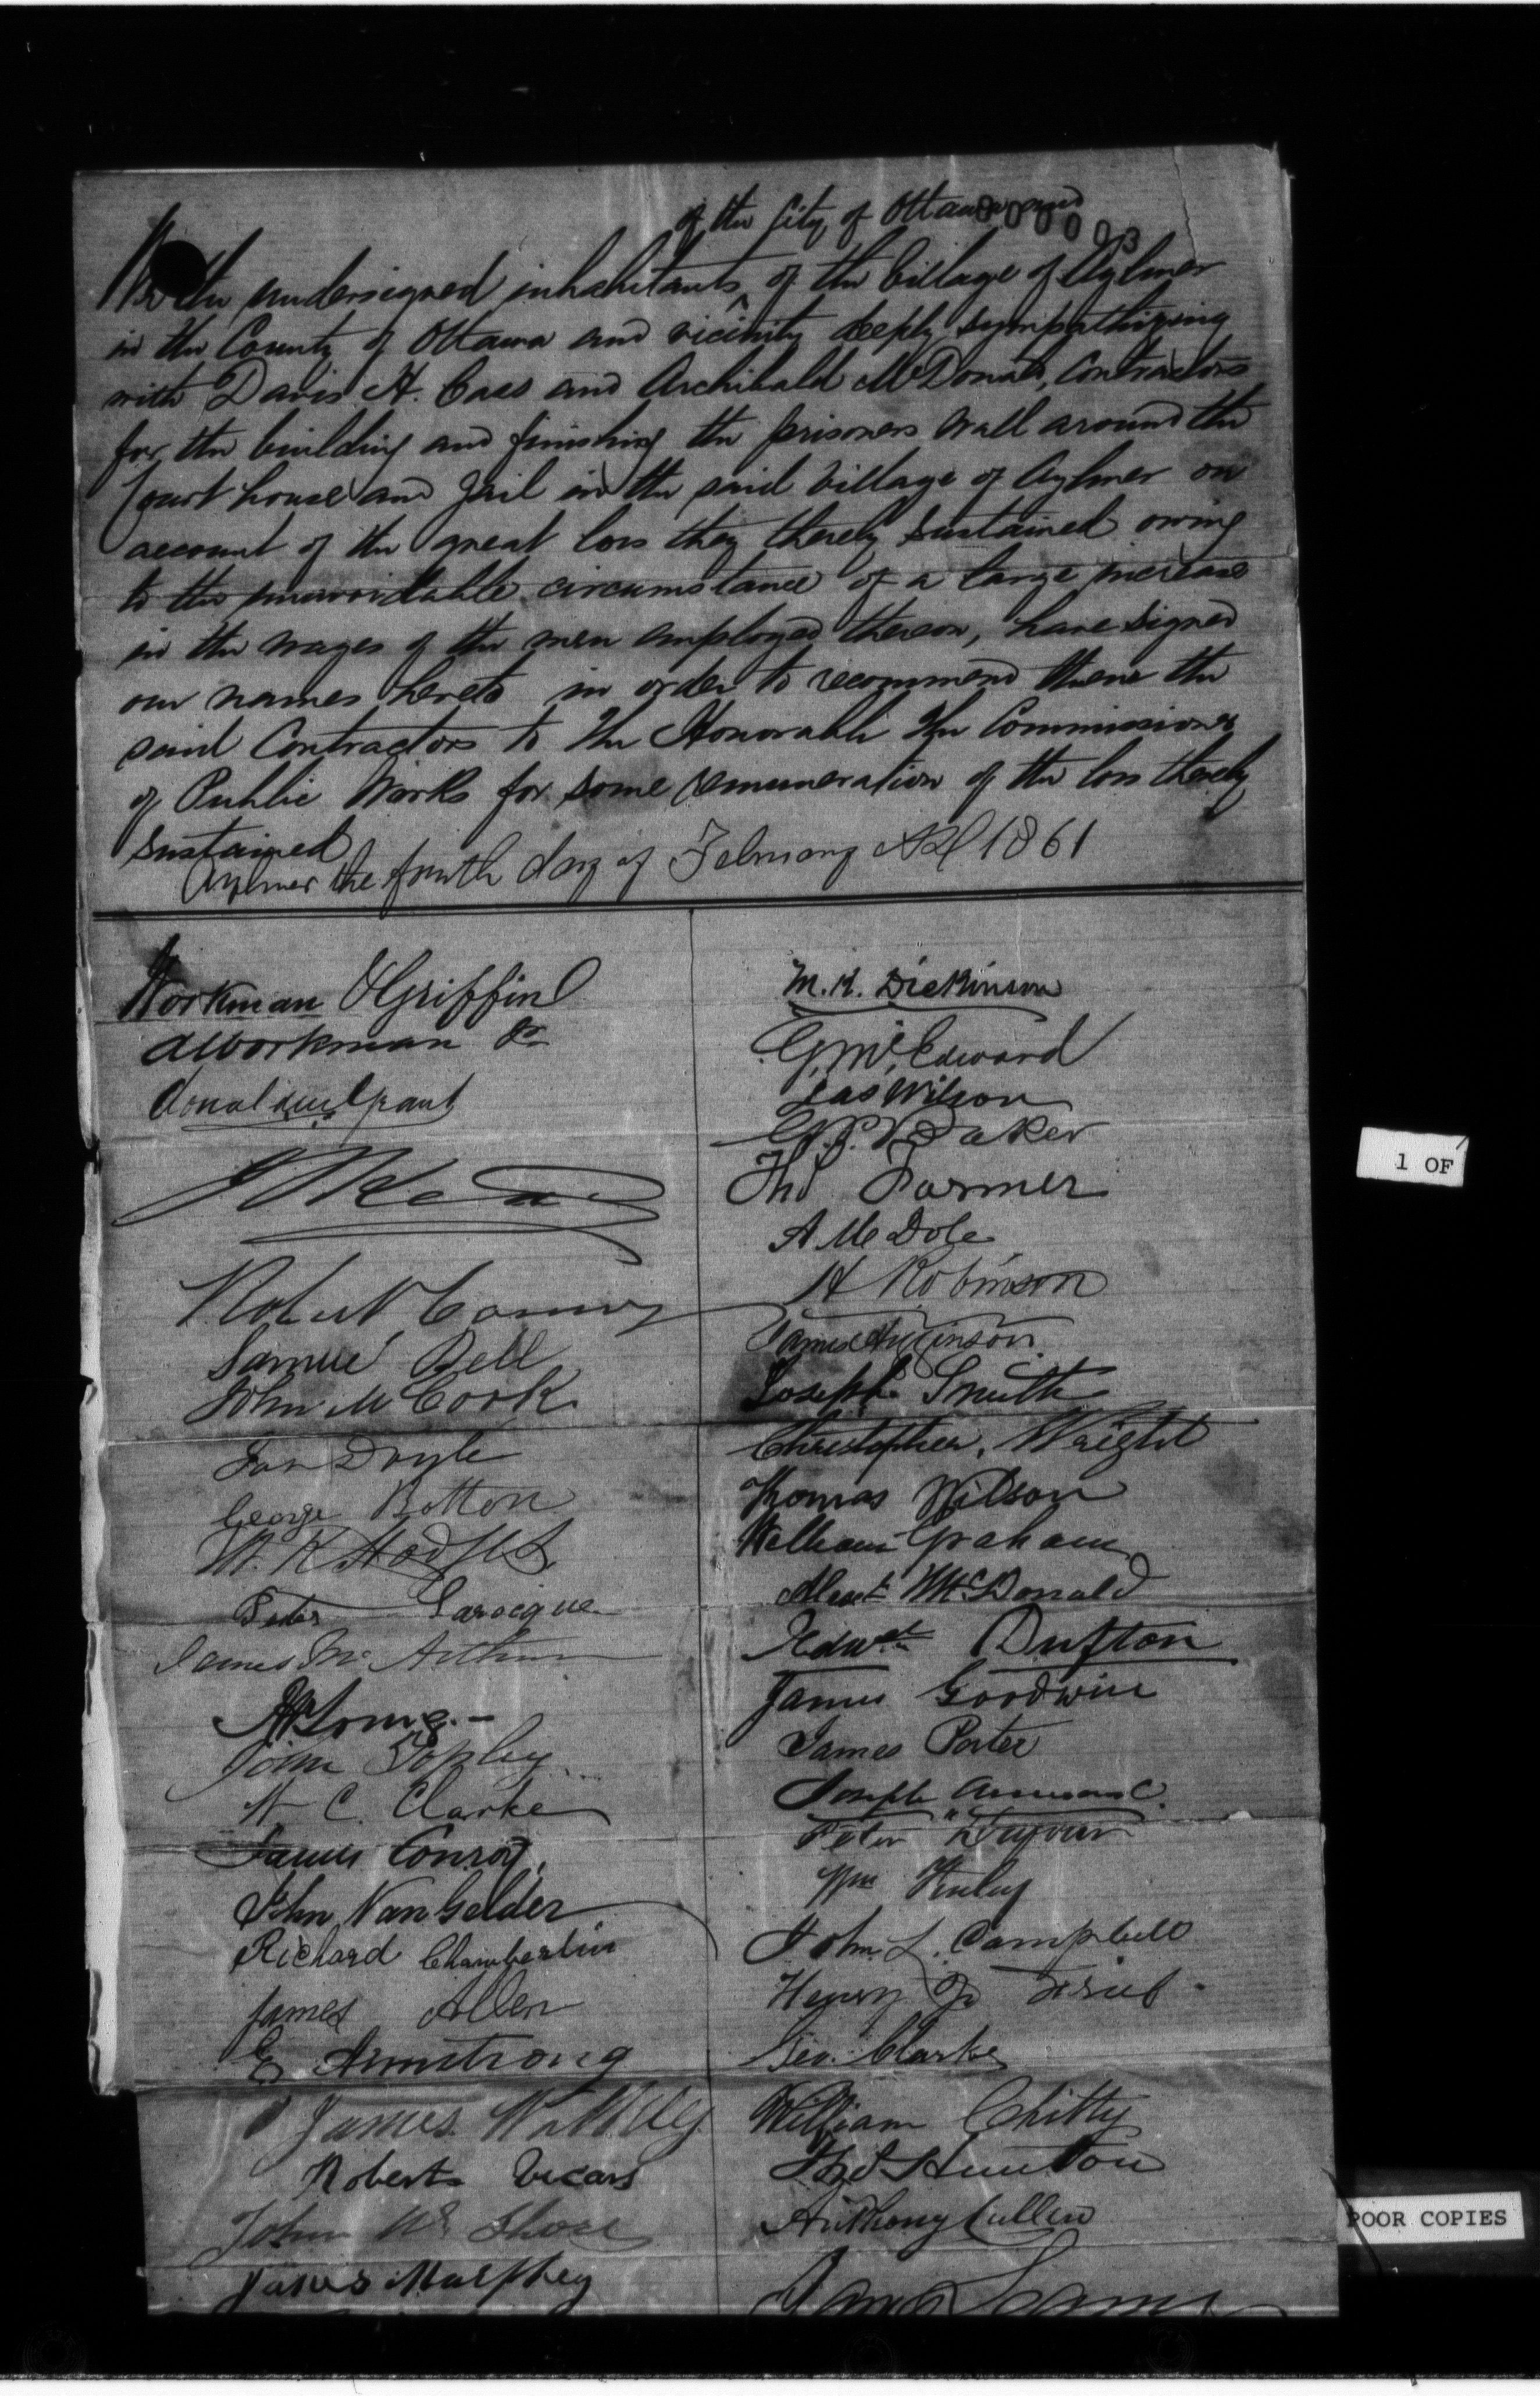 of the City of Ottawa and
000003
We the undersigned inhabitants ^ of the Village of Aylmer
in the County of Ottawa and vicinity deeply sympathizing
with Davis H. Cass and Archibald McDonald, Contractors
for the building and finishing the prisoners wall around the
Court house and Jail in the said Village of Aylmer on
account of the great loss they thereby sustained owing
to the unavoidable circumstance of a large increase
in the wages of the men employed thereon, have signed
our names hereto in order to recommend the
said Contractors to the Honorable the Commissioner
of Public Works for some remuneration of the loss thereby
sustained
Aylmer the fourth day of February AD 1861
Workman & Griffin
A Workman Jr
Donald M Grant
Robert Conroy
Samuel Bell
John M Cook
Doyle
George Botton
W. K. Hodgins
Peter Larocque
James McArthur
John Topley
C. Clarke
James Conroy
John VanGelder
Richard Chamberlin
James Allen
E Armstrong
James
Robert Vicars
John Mc
James Murphey
M. K. Dickinson
G. Mc. Edward
Jas Wilson
G. P. Baker
Tho Farmer
A McDole
H Robinson
James
Joseph Smith
Christopher Wright
Thomas Wilson
William Graham
McDonald
Edwd Dufton
James Goodwin
James Porter
Joseph
Peter
Wm Finley
John L. Campbell
Henry J Friel
Geo. Clarke
William Chitty
Thos Hunton
Anthony Cullen
1 OF 1
POOR COPIES